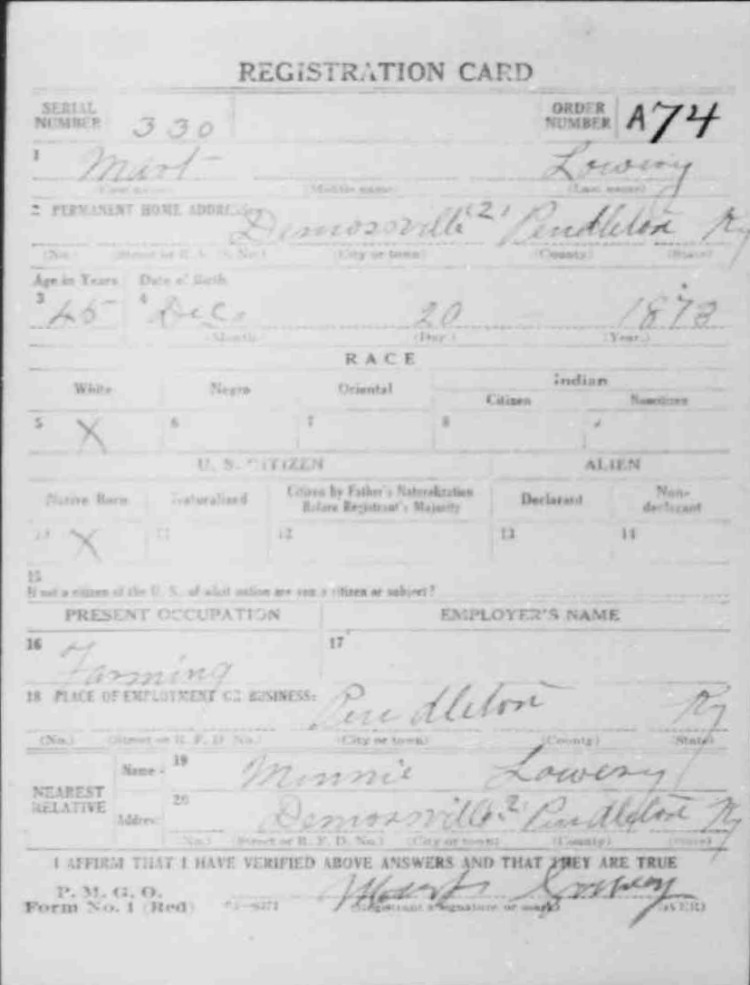 REGISTRATION CARD
SERIAL NUMBER 330 ORDER NUMBER A74
1 Mart Lowery
(First name) (Middle name) (Last name)
2 PERMANENT HOME ADDRESS: Demossville (2) Pendleton Ky
(No.) (Street or R. F. D. No.) (City or town) (County) (State)
Age in Years Date of Birth
3 45 4 Dec. 20 1873
(Month) (Day) (Year)
RACE
White Negro Oriental Indian
Citizen Noncitizen
5 X 6 7 8
U. S. CITIZEN ALIEN
Native Born Naturalized Citizen by Father's Naturalization Before Registrant's Majority Declarant Non-declarant
10 X 11 12 13 14
15
If not a citizen of the U. S., of what nation are you a citizen or subject?
PRESENT OCCUPATION EMPLOYER'S NAME
16 Farming 17
18 PLACE OF EMPLOYMENT OR BUSINESS: Pendleton Ky
(No.) (Street or R. F. D. No.) (City or town) (County) (State)
NEAREST RELATIVE
Name 19 Minnie Lowery
Address 20 Demossville 2 Pendleton Ky
(No.) (Street or R. F. D. No.) (City or town) (County) (State)
I AFFIRM THAT I HAVE VERIFIED ABOVE ANSWERS AND THAT THEY ARE TRUE
P. M. G. O.
Form No. 1 (Red) Mart Lowery
(Registrant's signature or mark) (OVER)